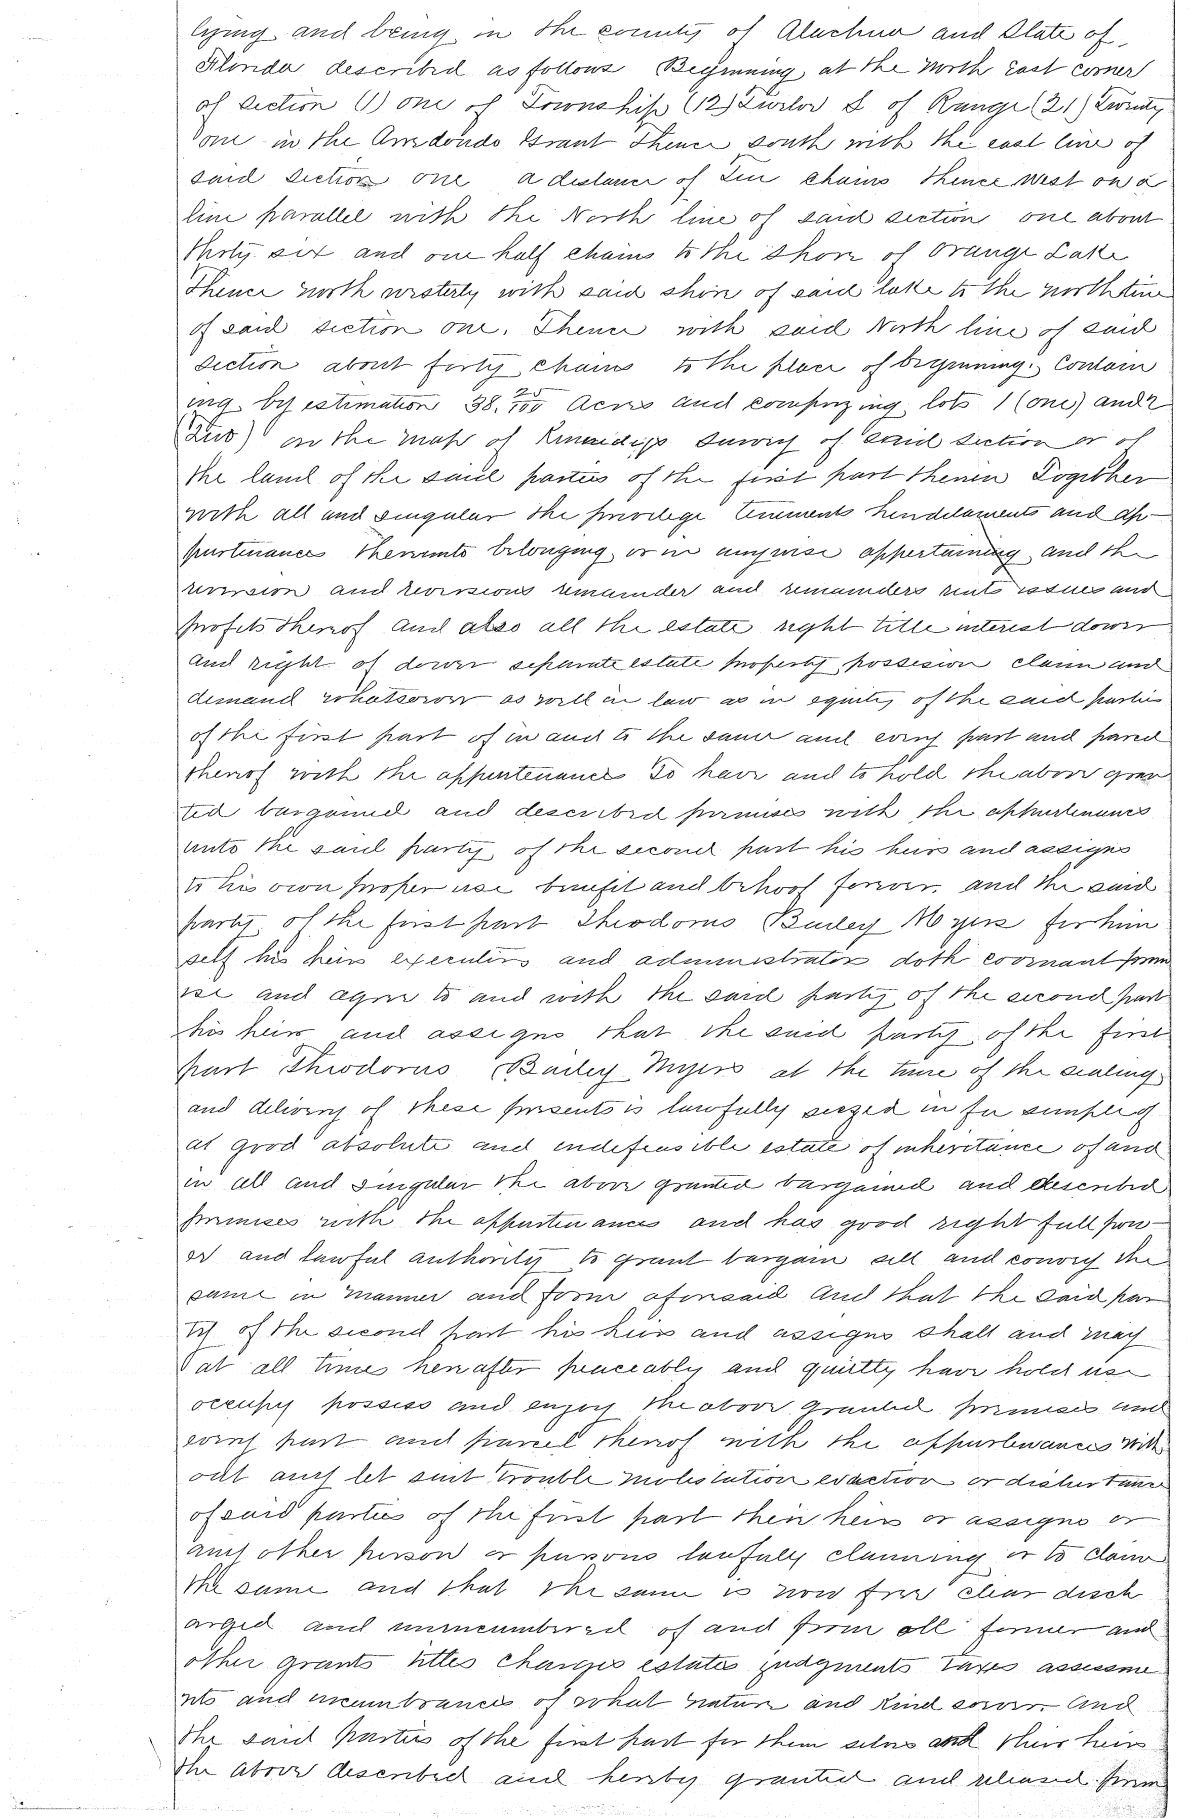 lying and being in the county of Alachua and State of
Florida described as follows Beginning at the north east corner
of section (1) one of Township (12) Twelve S of Range (21) Twenty
one in the Arredondo Grant Thence south with the east line of
said section one a distance of ten chains thence west on a
line parallel with the North line of said section one about
thirty six and one half chains to the shore of Orange Lake
Thence north westerly with said shore of said lake to the north line
of said section one. Thence with said North line of said
section about forty chains to the place of beginning. Contain
ing by estimation 38. 25/100 Acres and comprizing lots 1 (one) and 2
(Two) on the map of survey of said section or of
the land of the said parties of the first part therein Together
with all and singular the privilege tenements hendelaments and ap-
purtenances thereunto belonging or in anywise appertaining and the
reversion and reversions remainder and remainders rents issues and
profits thereof and also all the estate right title interest dower
and right of dower separate estate property possesion claim and
demand whatsoever as well in law as in equity of the said parties
of the first part of in and to the same and every part and parcel
thereof with the appurtenances To have and to hold the above gran
ted bargained and described premises with the appurtenances
unto the said party of the second part his heirs and assigns
to his own proper use benefit and behoof forever. and the said
party of the first part Theodorus Bailey Myers for him
self his heirs executors and administrators doth covenant prom
ise and agree to and with the said party of the second part
his heirs and assigns that the said party of the first
part Theodorus Bailey Myers at the time of the sealing
and delivery of these presents is lawfully seized in fee simple of
at good absolute and indefeasible estate of inheritance of and
in all and singular the above granted bargained and described
premises with the appurtenances and has good right full pow-
er and lawful authority to grant bargain sell and convey the
same in manner and form aforesaid And that the said par
ty of the second part his heirs and assigns shall and may
at all times hereafter peaceably and quietly have hold use
occupy possess and enjoy the above granted premises and
every part and parcel thereof with the appurtenances with
out any let suit trouble molestation evaction or disturbance
of said parties of the first part their heirs or assigns or
any other person or persons lawfully claiming or to claim
the same and that the same is now free clear disch
arged and unincumbered of and from all former and
other grants titles charges estates judgments taxes assessme
nts and incumbrances of what nature and kind soever. And
the said parties of the first part for them selves and their heirs
the above described and hereby granted and released prem